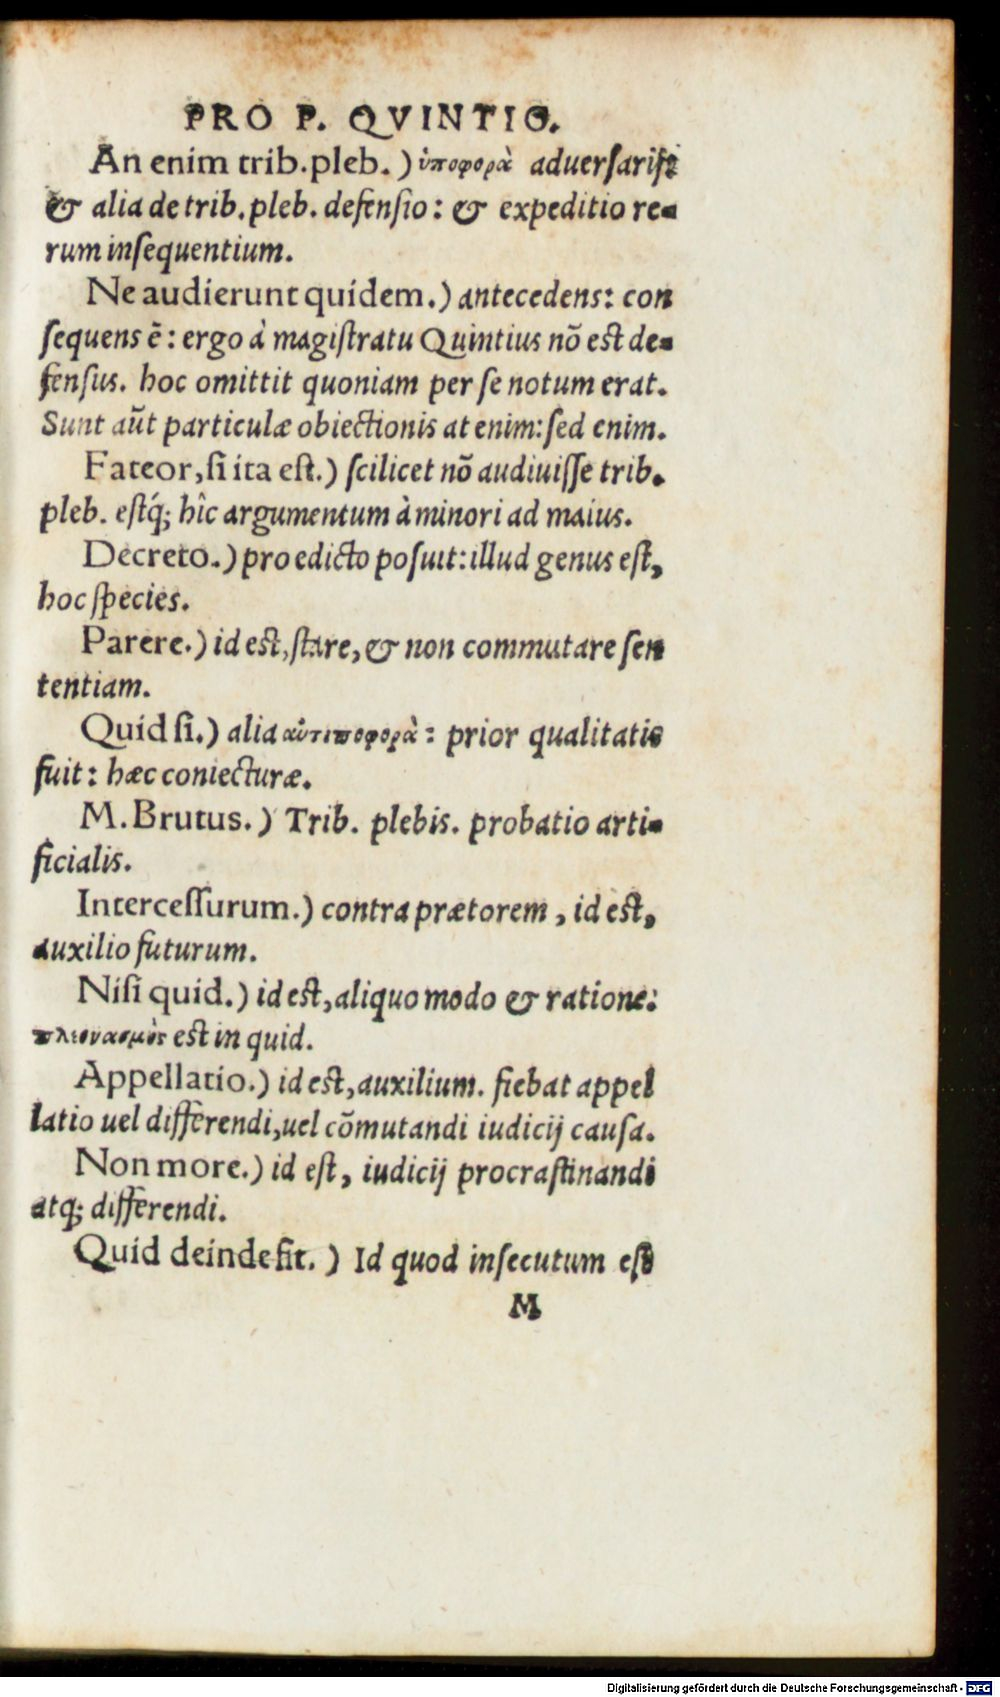 PRO P. QVINTIO.
An enim trib.pleb.) ὑποφορὰ aduersarij:
& alia de trib. pleb. defensio: & expeditio re-
rum insequentium.
Ne audierunt quidem.) antecedens: con
sequens ē: ergo à magistratu Quintius nō est de-
fensus. hoc omittit quoniam per se notum erat.
Sunt aūt particulæ obiectionis at enim: sed enim.
Fateor, si ita est.) scilicet nō audiuisse trib.
pleb. estq́; hîc argumentum à minori ad maius.
Decreto.) pro edicto posuit: illud genus est,
hoc species.
Parere.) id est, stare, & non commutare sen
tentiam.
Quid si.) alia : prior qualitatis
fuit: hæc coniecturæ.
M. Brutus.) Trib. plebis. probatio arti-
ficialis.
Intercessurum.) contra prætorem, id est,
auxilio futurum.
Nisi quid.) id est, aliquo modo & ratione:
πλεονασμὸς est in quid.
Appellatio.) id est, auxilium. fiebat appel
latio uel differendi, uel cōmutandi iudicij causa.
Non more.) id est, iudicij procrastinandi
atq; differendi.
Quid deinde fit.) Id quod insecutum est
M
Digitalisierung gefördert durch die Deutsche Forschungsgemeinschaft - DFG